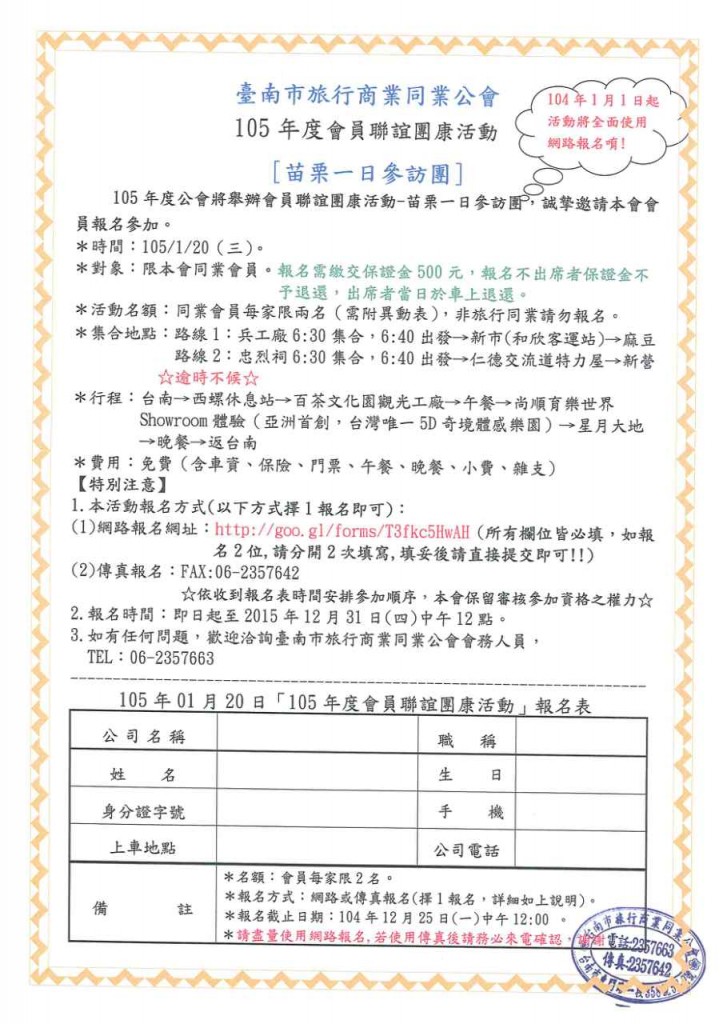 臺南市旅行商業同業公會
105 年度會員聯誼團康活動
104 年 1 月 1 日起
活動將全面使用
網路報名唷!
[苗栗一日參訪團]
105 年度公會將舉辦會員聯誼團康活動-苗栗一日參訪團，誠摯邀請本會會
員報名參加。
＊時間：105/1/20（三）。
＊對象：限本會同業會員。報名需繳交保證金 500 元，報名不出席者保證金不
予退還，出席者當日於車上退還。
＊活動名額：同業會員每家限兩名（需附異動表），非旅行同業請勿報名。
＊集合地點：路線 1：兵工廠 6:30 集合，6:40 出發→新市(和欣客運站)→麻豆
路線 2：忠烈祠 6:30 集合，6:40 出發→仁德交流道特力屋→新營
☆逾時不候☆
＊行程：台南→西螺休息站→百茶文化園觀光工廠→午餐→尚順育樂世界
Showroom 體驗（亞洲首創，台灣唯一 5D 奇境體感樂園）→星月大地
→晚餐→返台南
＊費用：免費（含車資、保險、門票、午餐、晚餐、小費、雜支）
【特別注意】
1.本活動報名方式(以下方式擇 1 報名即可)：
(1)網路報名網址：http://goo.gl/forms/T3fkc5HwAH (所有欄位皆必填，如報
名 2 位,請分開 2 次填寫,填妥後請直接提交即可!!)
(2)傳真報名：FAX:06-2357642
☆依收到報名表時間安排參加順序，本會保留審核參加資格之權力☆
2.報名時間：即日起至 2015 年 12 月 31 日(四)中午 12 點。
3.如有任何問題，歡迎洽詢臺南市旅行商業同業公會會務人員，
TEL：06-2357663
105 年 01 月 20 日「105 年度會員聯誼團康活動」報名表
公司名稱 職 稱
姓 名 生 日
身分證字號 手 機
上車地點 公司電話
備 註
＊名額：會員每家限 2 名。
＊報名方式：網路或傳真報名(擇 1 報名，詳細如上說明)。
＊報名截止日期：104 年 12 月 25 日(一)中午 12:00 。
＊請盡量使用網路報名,若使用傳真後請務必來電確認，謝謝
南市旅行商業同業公會
電話:2357663
傳真:2357642